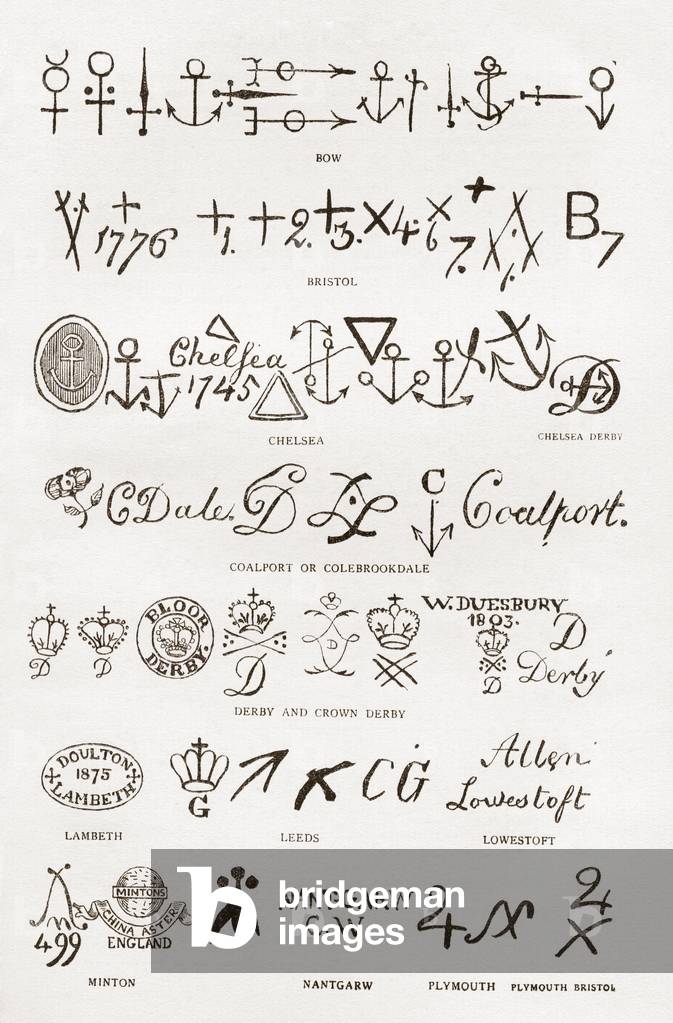 BOW
1776 1. 2. 3. 4. 6 7. 1. B7
BRISTOL
Chelsea
1745
D
CHELSEA
CHELSEA DERBY
CDale. C Coalport.
COALPORT OR COLEBROOKDALE
D D BLOOR DERBY. D D
W. DUESBURY
1803.
D
D
Derby
DERBY AND CROWN DERBY
DOULTON
1875
LAMBETH
G
C G
Allen
Lowestoft
LAMBETH LEEDS LOWESTOFT
499
MINTONS
CHINA ASTER
ENGLAND
NANTGARW
C.W.
b bridgeman
images
MINTON NANTGARW PLYMOUTH PLYMOUTH BRISTOL